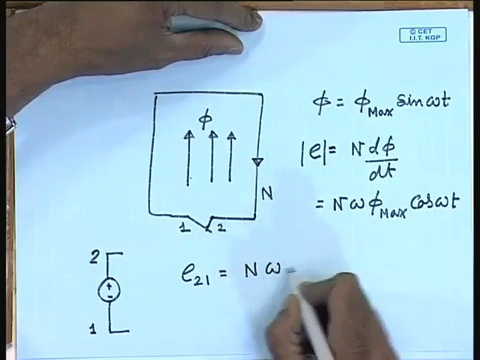 © CET
I.I.T. KGP
ϕ
ϕ = ϕMax sinωt
|e| = N dϕ/dt
= NωϕMax cosωt
N
1 2
2
+
-
1
e21 = Nω